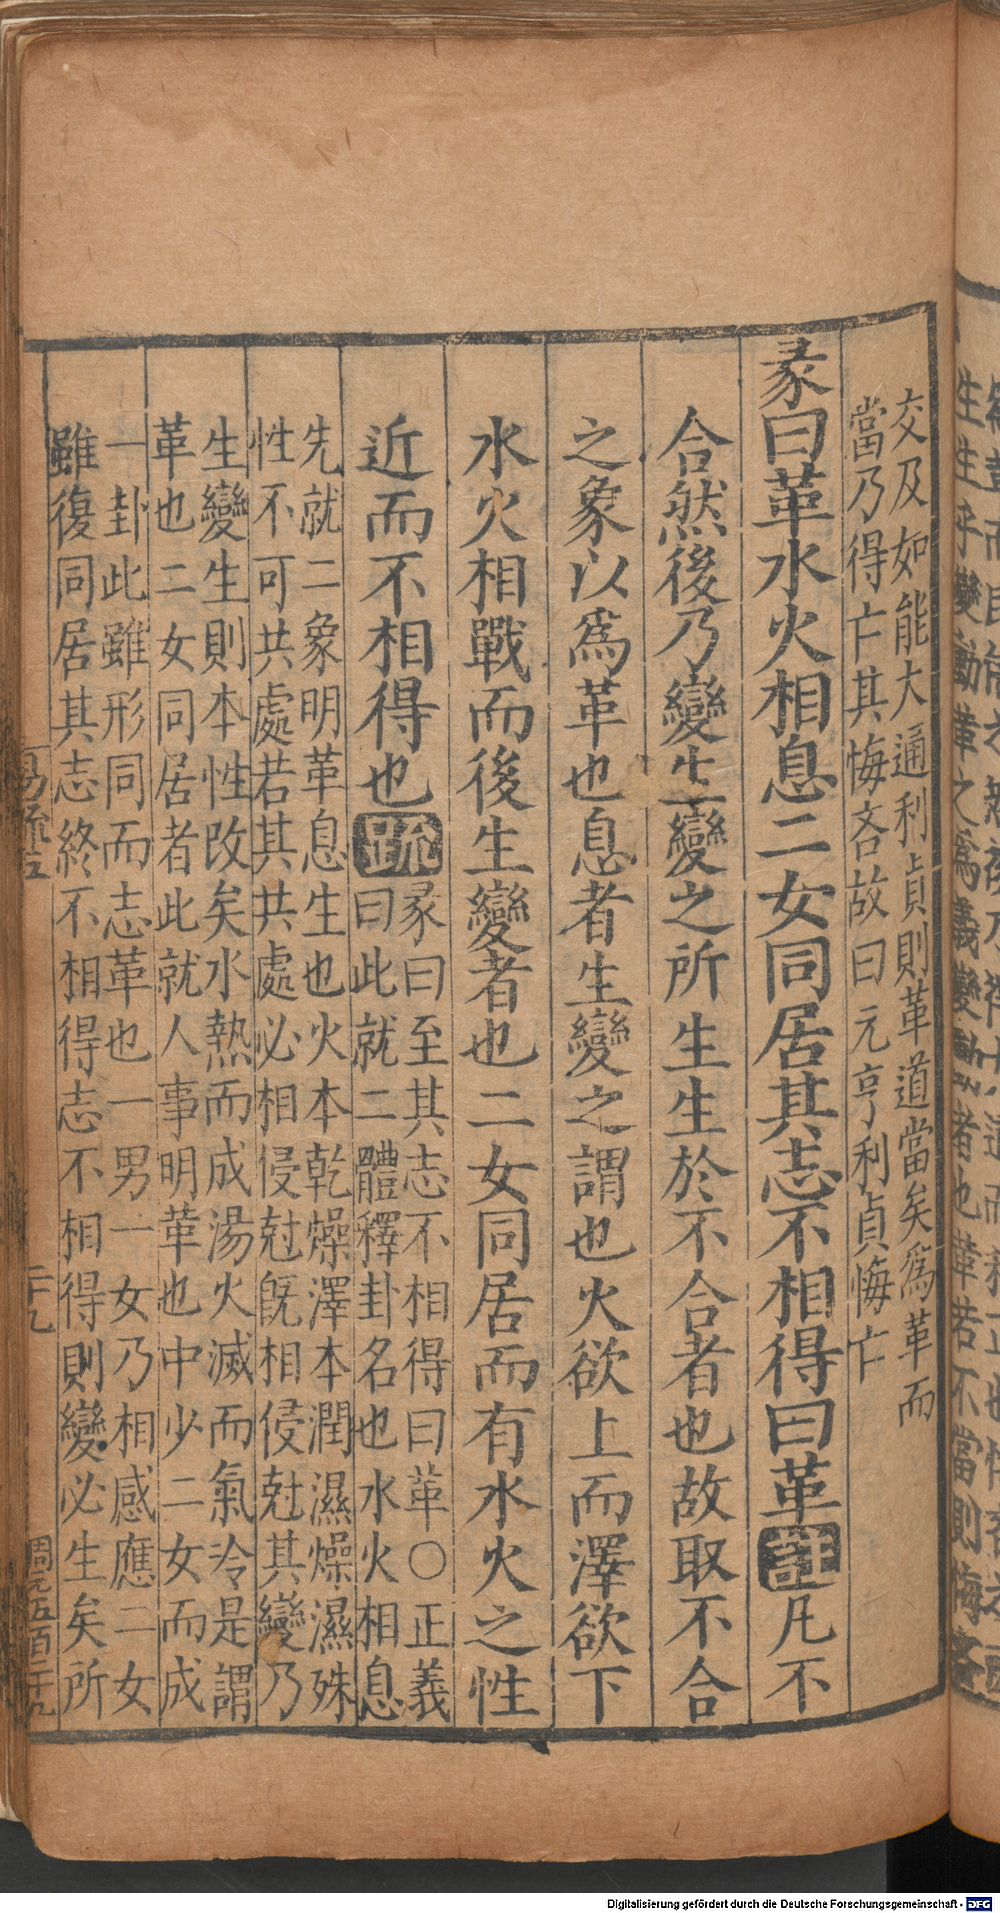 交及如能大通利貞則革道當矣爲革而
當乃得亡其悔吝故曰元亨利貞悔亡
彖曰革水火相息二女同居其志不相得曰革註凡不
合然後乃變生變之所生生於不合者也故取不合
之象以爲革也息者生變之謂也火欲上而澤欲下
水火相戰而後生變者也二女同居而有水火之性
近而不相得也疏
彖曰至其志不相得曰革○正義
曰此就二體釋卦名也水火相息
先就二象明革息生也火本乾燥澤本潤濕燥濕殊
性不可共處若其共處必相侵尅旣相侵尅其變乃
生變生則本性改矣水熱而成湯火滅而氣冷是謂
革也二女同居者此就人事明革也中少二女而成
一卦此雖形同而志革也一男一女乃相感應二女
雖復同居其志終不相得志不相得則變必生矣所
易疏五
二十九
周元五百二十九
Digitalisierung gefördert durch die Deutsche Forschungsgemeinschaft - DFG